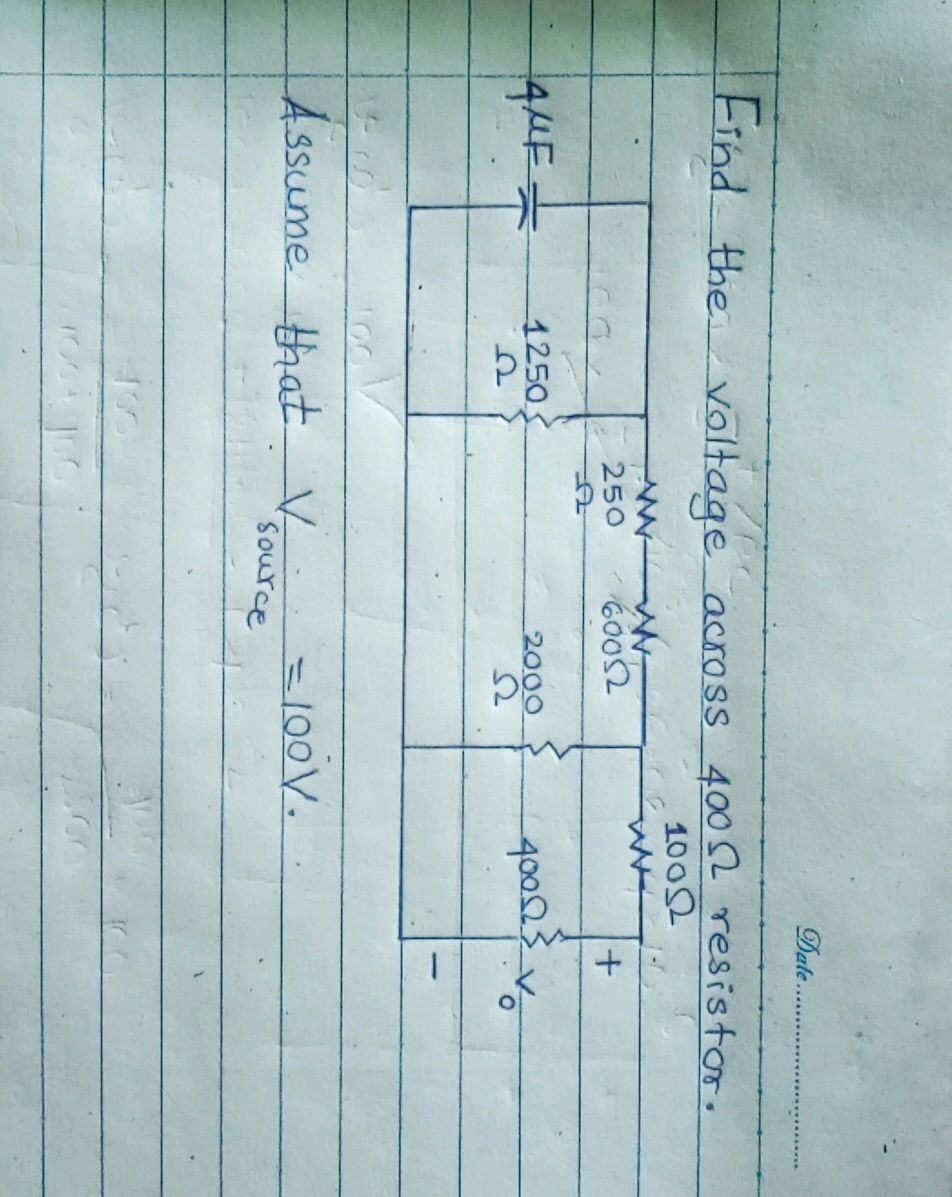 Date
Find the voltage across 400Ω resistor.
100Ω
250
Ω
600Ω
+
4μF
1250
Ω
2000
Ω
400Ω
V
o
-
Assume that V
source
=100V.